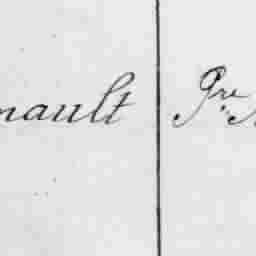 nault Pre